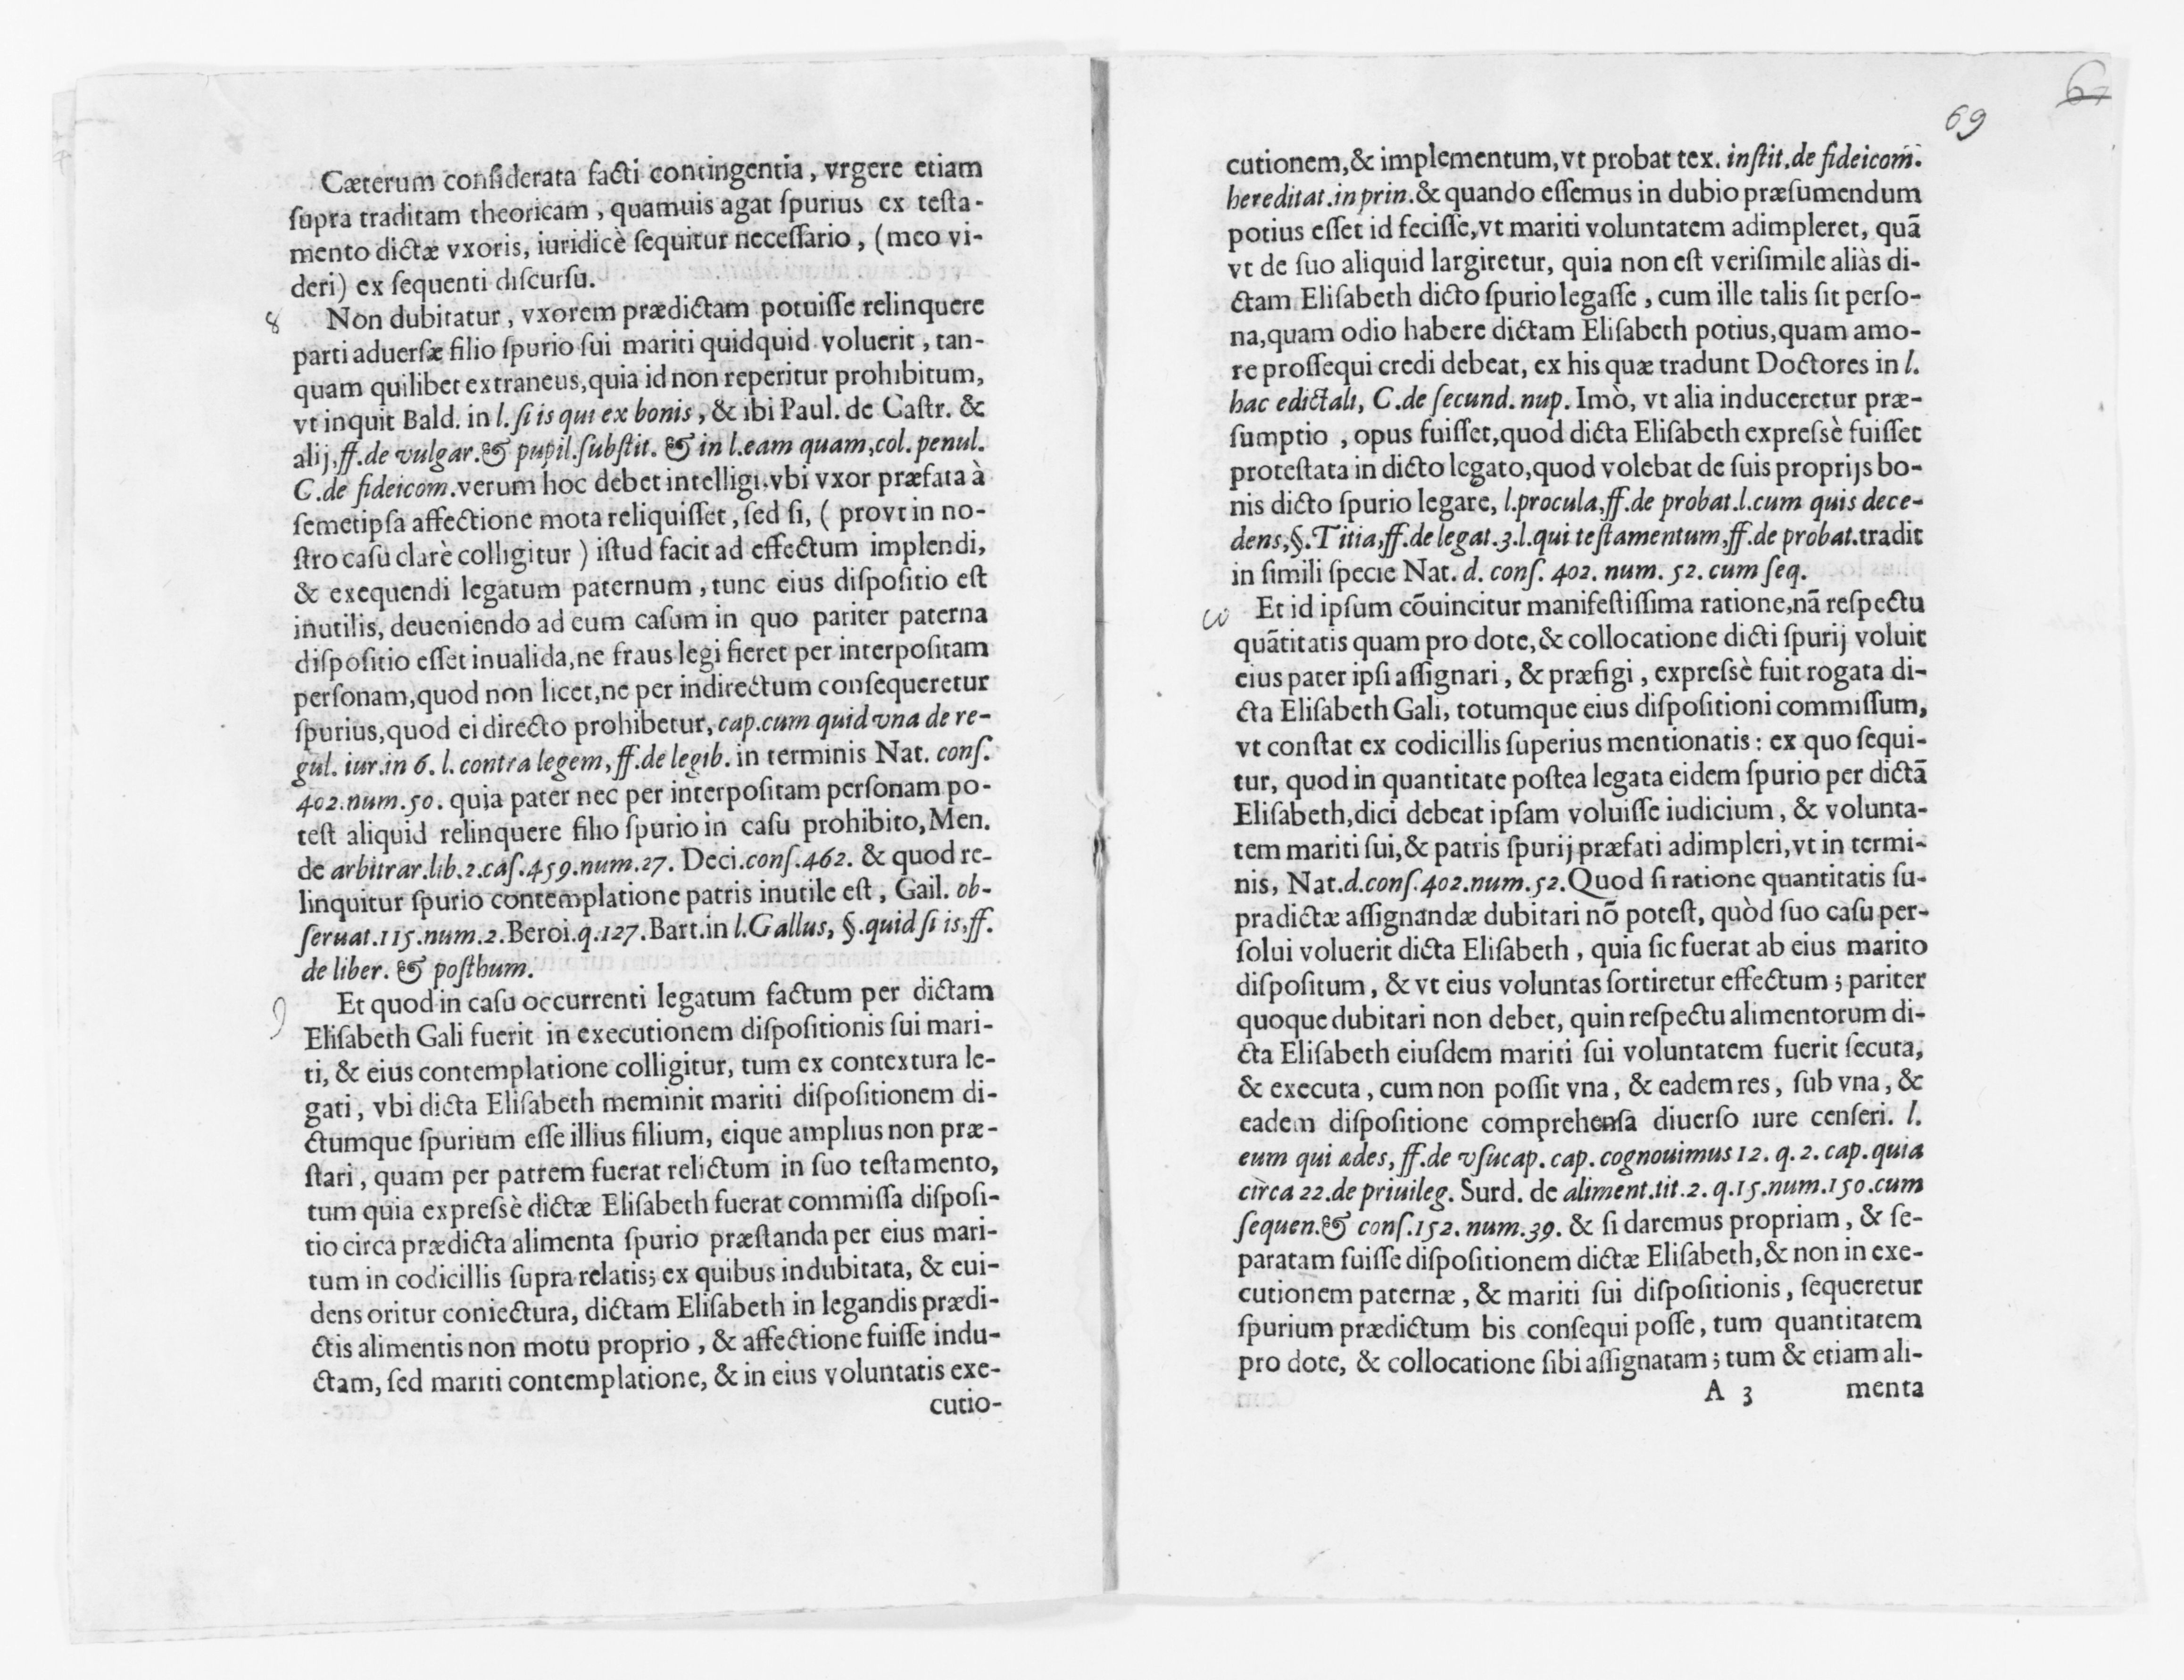 Cæterum conſiderata facti contingentia, vrgere etiam
ſupra traditam theoricam, quamuis agat ſpurius ex teſta-
mento dictæ vxoris, iuridicè ſequitur neceſſario, (meo vi-
deri) ex ſequenti diſcurſu.
8 Non dubitatur, vxorem prædictam potuiſſe relinquere
parti aduerſæ filio ſpurio ſui mariti quidquid voluerit, tan-
quam quilibet extraneus, quia id non reperitur prohibitum,
vt inquit Bald. in l. ſi is qui ex bonis, & ibi Paul. de Caſtr. &
alij, ff. de vulgar. & pupil. ſubſtit. & in l. eam quam, col. penul.
C. de fideicom. verum hoc debet intelligi, vbi vxor præfata à
ſemetipſa affectione mota reliquiſſet, ſed ſi, (provt in no-
ſtro caſu clarè colligitur) iſtud facit ad effectum implendi,
& exequendi legatum paternum, tunc eius diſpoſitio eſt
inutilis, deueniendo ad eum caſum in quo pariter paterna
diſpoſitio eſſet inualida, ne fraus legi fieret per interpoſitam
perſonam, quod non licet, ne per indirectum conſequeretur
ſpurius, quod ei directo prohibetur, cap. cum quid vna de re-
gul. iur. in 6. l. contra legem, ff. de legib. in terminis Nat. conſ.
402. num. 50. quia pater nec per interpoſitam perſonam po-
teſt aliquid relinquere filio ſpurio in caſu prohibito, Men.
de arbitrar. lib. 2. caſ. 459. num. 27. Deci. conſ. 462. & quod re-
linquitur ſpurio contemplatione patris inutile eſt, Gail. ob-
ſeruat. 115. num. 2. Beroi. q. 127. Bart. in l. Gallus, §. quid ſi is, ff.
de liber. & poſthum.
9 Et quod in caſu occurrenti legatum factum per dictam
Eliſabeth Gali fuerit in executionem diſpoſitionis ſui mari-
ti, & eius contemplatione colligitur, tum ex contextura le-
gati, vbi dicta Eliſabeth meminit mariti diſpoſitionem di-
ctumque ſpurium eſſe illius filium, eique amplius non præ-
ſtari, quam per patrem fuerat relictum in ſuo teſtamento,
tum quia expreſsè dictæ Eliſabeth fuerat commiſſa diſpoſi-
tio circa prædicta alimenta ſpurio præſtanda per eius mari-
tum in codicillis ſupra relatis; ex quibus indubitata, & eui-
dens oritur coniectura, dictam Eliſabeth in legandis prædi-
ctis alimentis non motu proprio, & affectione fuiſſe indu-
ctam, ſed mariti contemplatione, & in eius voluntatis exe-
cutio-
69
cutionem, & implementum, vt probat tex. inſtit. de fideicom.
hereditat. in prin. & quando eſſemus in dubio præſumendum
potius eſſet id feciſſe, vt mariti voluntatem adimpleret, quā
vt de ſuo aliquid largiretur, quia non eſt veriſimile aliàs di-
ctam Eliſabeth dicto ſpurio legaſſe, cum ille talis ſit perſo-
na, quam odio habere dictam Eliſabeth potius, quam amo-
re proſſequi credi debeat, ex his quæ tradunt Doctores in l.
hac edictali, C. de ſecund. nup. Imò, vt alia induceretur præ-
ſumptio, opus fuiſſet, quod dicta Eliſabeth expreſsè fuiſſet
proteſtata in dicto legato, quod volebat de ſuis proprijs bo-
nis dicto ſpurio legare, l. procula, ff. de probat. l. cum quis dece-
dens, §. Titia, ff. de legat. 3. l. qui teſtamentum, ff. de probat. tradit
in ſimili ſpecie Nat. d. conſ. 402. num. 52. cum ſeq.
Et id ipſum cōuincitur manifeſtiſſima ratione, nā reſpectu
quātitatis quam pro dote, & collocatione dicti ſpurij voluit
eius pater ipſi aſſignari, & præfigi, expreſsè fuit rogata di-
cta Eliſabeth Gali, totumque eius diſpoſitioni commiſſum,
vt conſtat ex codicillis ſuperius mentionatis: ex quo ſequi-
tur, quod in quantitate poſtea legata eidem ſpurio per dictā
Eliſabeth, dici debeat ipſam voluiſſe iudicium, & volunta-
tem mariti ſui, & patris ſpurij præfati adimpleri, vt in termi-
nis, Nat. d. conſ. 402. num. 52. Quod ſi ratione quantitatis ſu-
pradictæ aſſignandæ dubitari nō poteſt, quòd ſuo caſu per-
ſolui voluerit dicta Eliſabeth, quia ſic fuerat ab eius marito
diſpoſitum, & vt eius voluntas ſortiretur effectum; pariter
quoque dubitari non debet, quin reſpectu alimentorum di-
cta Eliſabeth eiuſdem mariti ſui voluntatem fuerit ſecuta,
& executa, cum non poſſit vna, & eadem res, ſub vna, &
eadem diſpoſitione comprehenſa diuerſo iure cenſeri. l.
eum qui ædes, ff. de vſucap. cap. cognouimus 12. q. 2. cap. quia
circa 22. de priuileg. Surd. de aliment. tit. 2. q. 15. num. 150. cum
ſequen. & conſ. 152. num. 39. & ſi daremus propriam, & ſe-
paratam fuiſſe diſpoſitionem dictæ Eliſabeth, & non in exe-
cutionem paternæ, & mariti ſui diſpoſitionis, ſequeretur
ſpurium prædictum bis conſequi poſſe, tum quantitatem
pro dote, & collocatione ſibi aſſignatam; tum & etiam ali-
A 3 menta